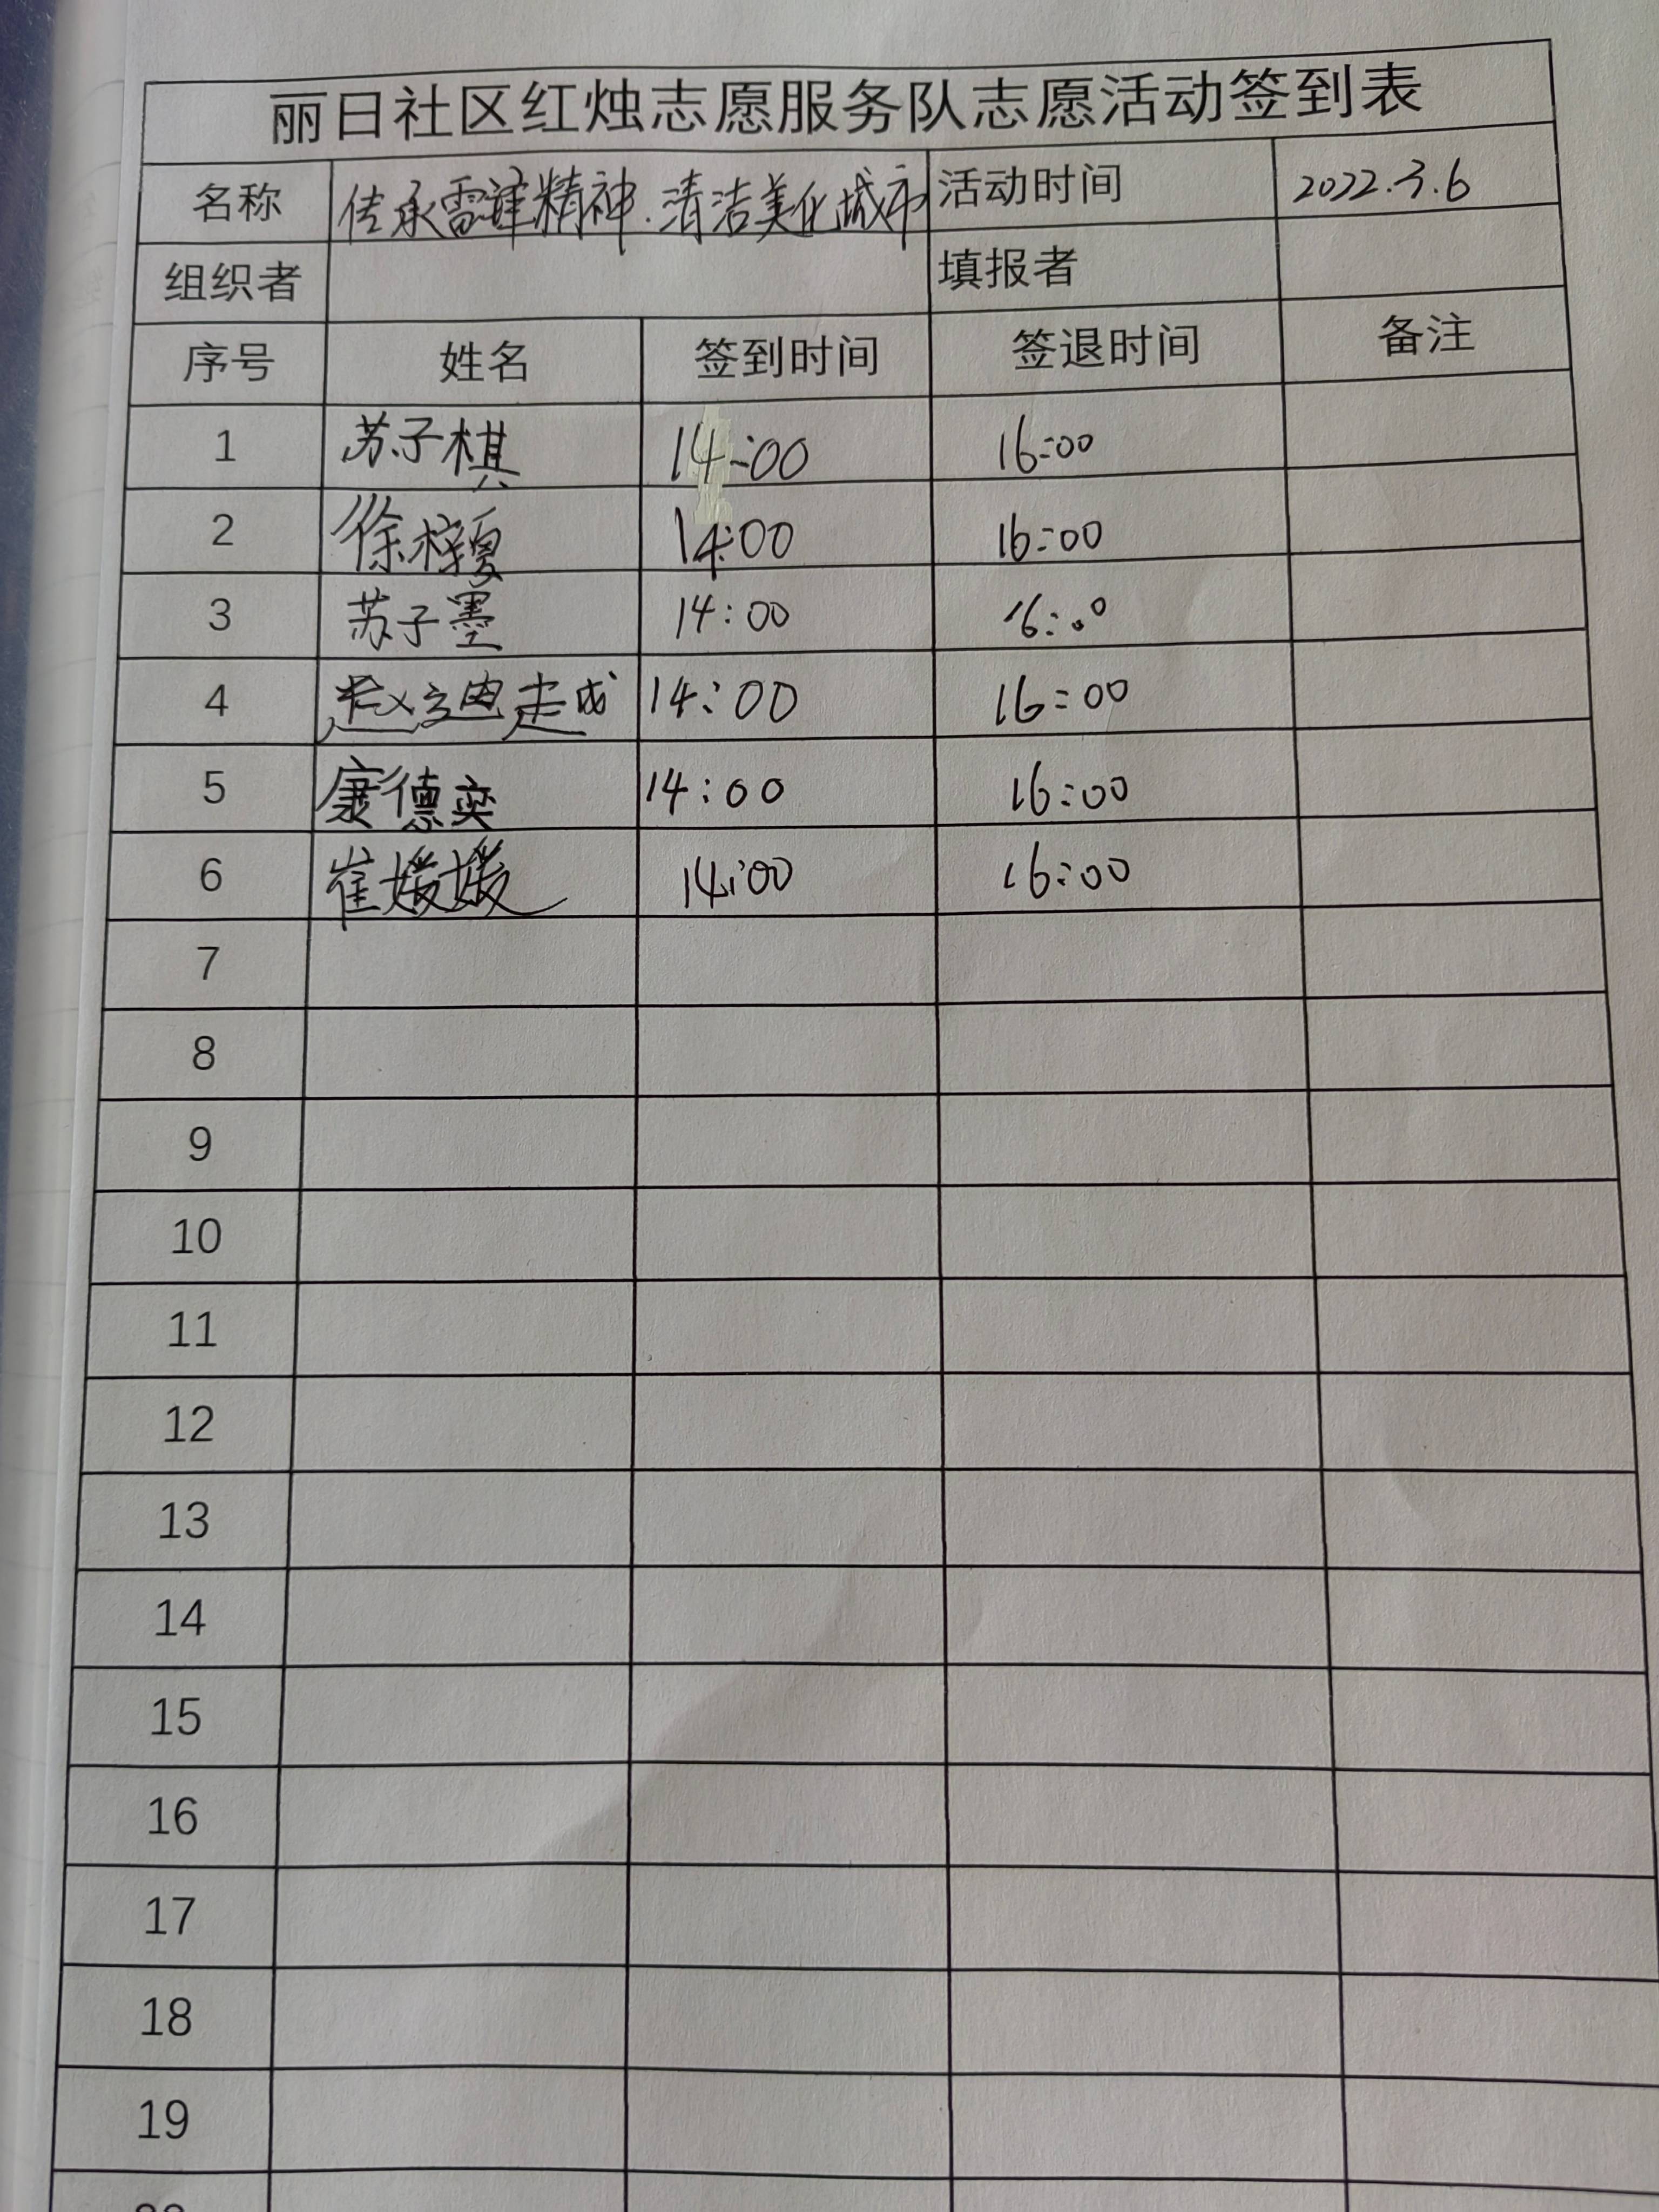 丽日社区红烛志愿服务队志愿活动签到表
名称 传承雷锋精神.清洁美化城市 活动时间 2022.3.6
组织者 填报者
序号 姓名 签到时间 签退时间 备注
1 苏子棋 14:00 16:00
2 徐梓夏 14:00 16:00
3 苏子墨 14:00 16:00
4 14:00 16:00
5 康德奕 14:00 16:00
6 崔媛媛 14:00 16:00
7
8
9
10
11
12
13
14
15
16
17
18
19